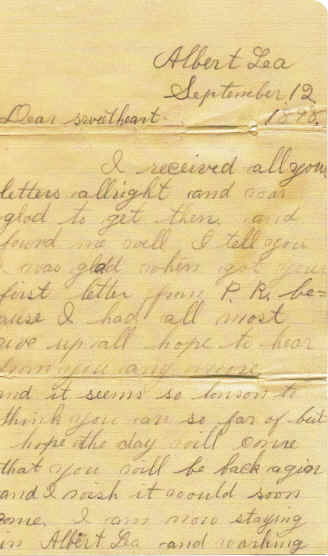 Albert Lea
September 12
1898
Dear sweetheart.
I received all your
letters allright and was
glad to get them and
found me well, I tell you
I was glad when got your
first letter from P. R. be-
ause I had all most
ive up all hope to hear
from you any more
and it seems so lonson to
think you are so far of but
hope the day will come
that you will be back agian
and I wish it would soon
ome, I am now staying
in Albert Lea and working